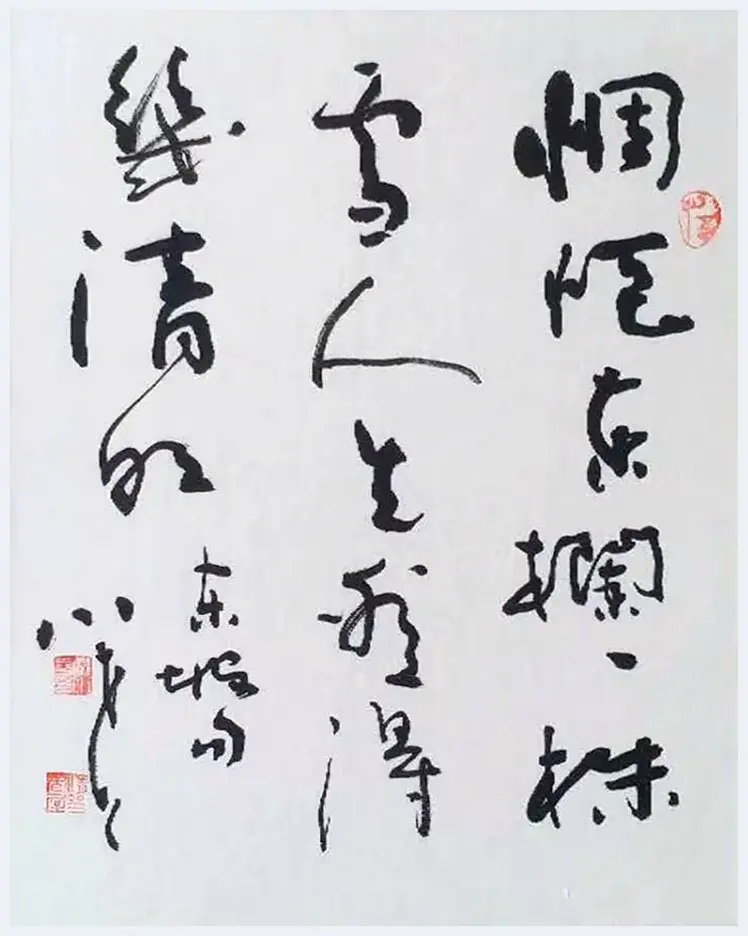 惆悵东欄一株
雪人生看得
幾清明
东坡句